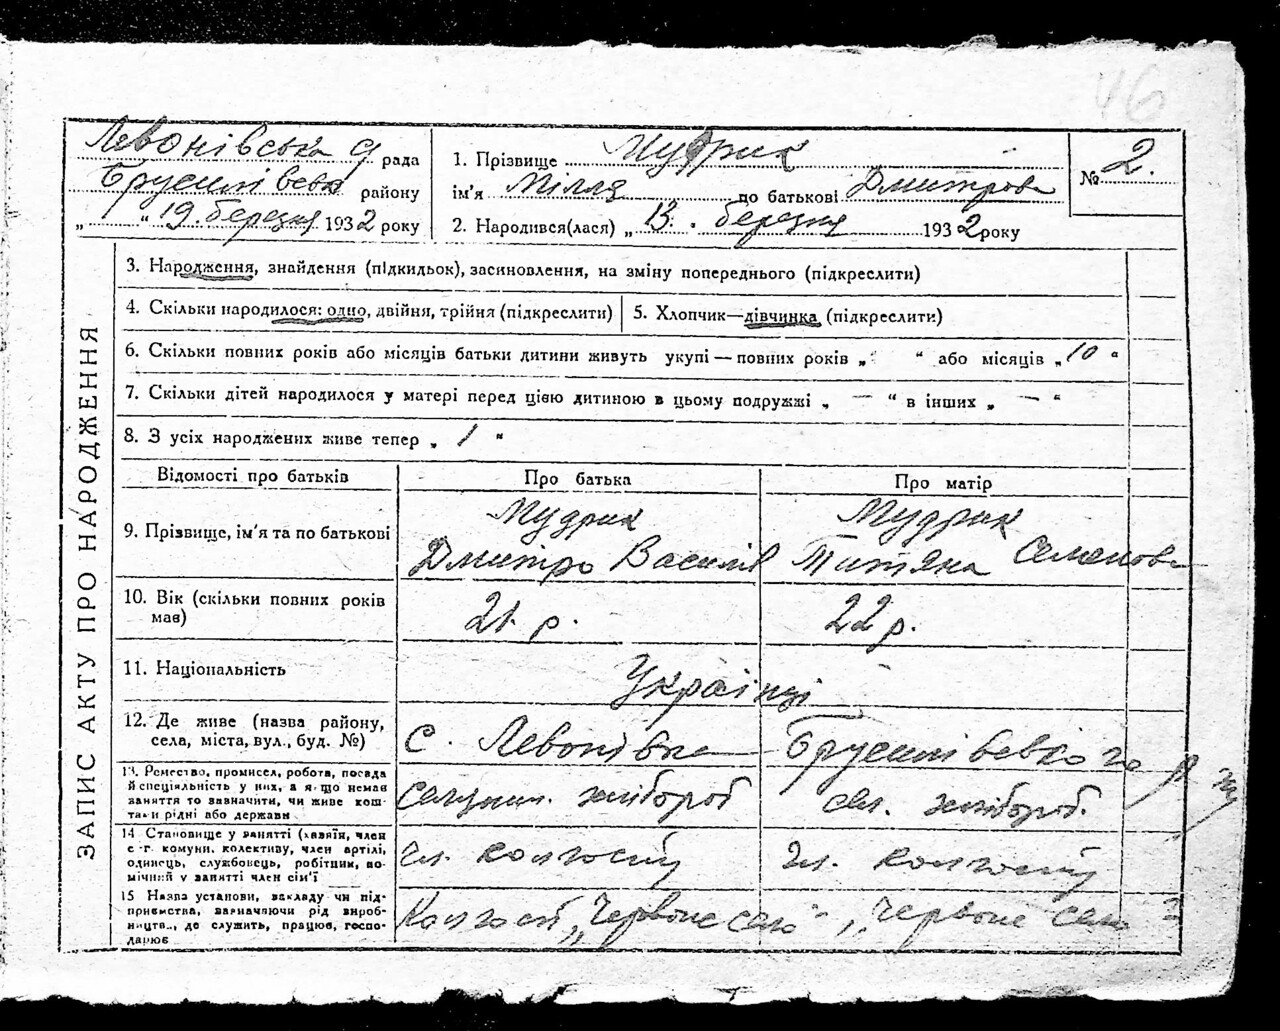 46
Левонівська с/рада
Брусилівськ. району
„ “ 19. березня 1932 року
1. Прізвище Мудрик
ім'я Міля по батькові Дмитрова
2. Народився(лася) „ 13. березня 1932 року
№ 2.
ЗАПИС АКТУ ПРО НАРОДЖЕННЯ
3. Народження, знайдення (підкидьок), засиновлення, на зміну попереднього (підкреслити)
4. Скільки народилося: одно, двійня, трійня (підкреслити)
5. Хлопчик—дівчинка (підкреслити)
6. Скільки повних років або місяців батьки дитини живуть укупі—повних років „ “ або місяців „10“
7. Скільки дітей народилося у матері перед цією дитиною в цьому подружжі „ — “ в інших „ — “
8. З усіх народжених живе тепер „ 1 “
Відомості про батьків Про батька Про матір
9. Прізвище, ім'я та по батькові
Мудрик
Дмитро Василів
Мудрик
Титяна Семенова
10. Вік (скільки повних років
мав)
21. р.
22 р.
11. Національність
Українці
12. Де живе (назва району,
села, міста, вул., буд. №)
с. Левонівка Брусилівського р-ну
13. Ремество, промисел, робота, посада
й спеціяльність у них, а якщо немав
заняття то зазначити, чи живе кош-
тами рідні або держави
селянин. хлібороб
сел. хлібороб.
14. Становище у занятті (хазяїн, член
с.-г. комуни, колективу, член артілі,
одинець, службовець, робітник, по-
мічний у занятті член сім'ї
чл. колгоспу
чл. колгоспу
15 Назва установи, закладу чи під-
приємства, зазначаючи рід вироб-
ництва, де служить, працює, госпо-
дарює
Колгосп „Червоне село“
„Червоне село“